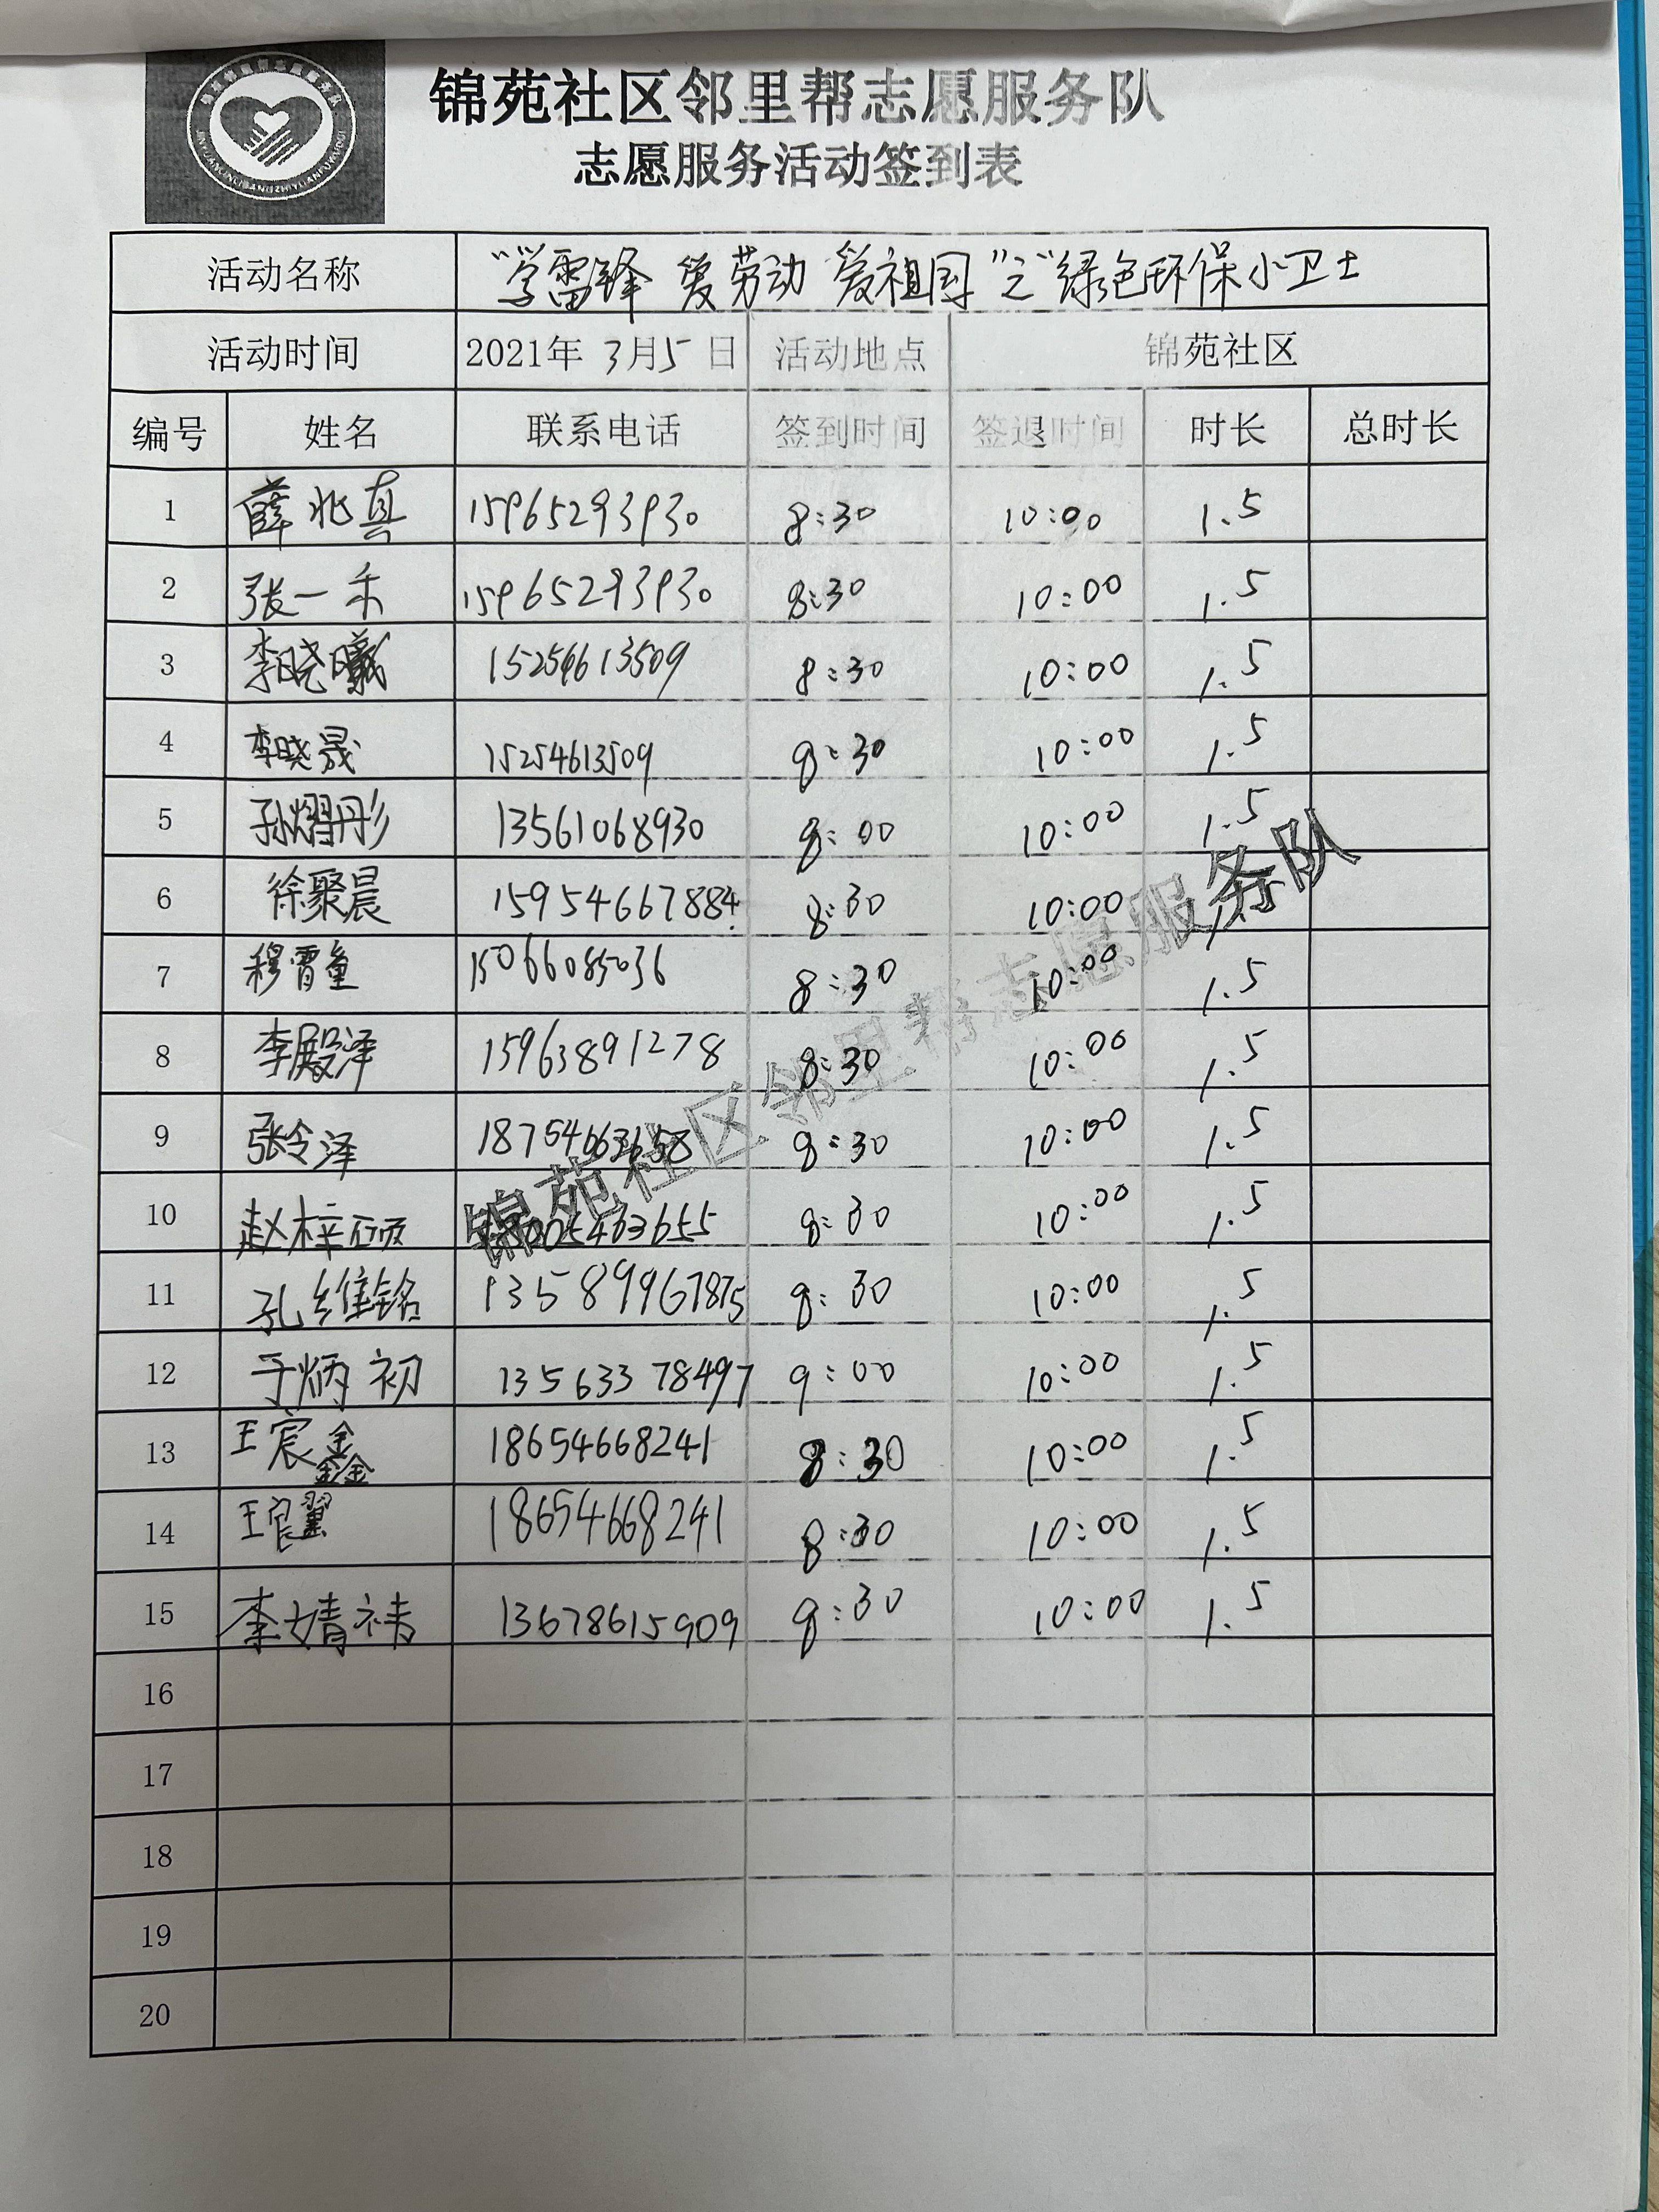 锦苑社区邻里帮志愿服务队
志愿服务活动签到表
活动名称 "学雷锋 爱劳动 爱祖国"之"绿色环保小卫士
活动时间 2021年 3月5日 活动地点 锦苑社区
编号 姓名 联系电话 签到时间 签退时间 时长 总时长
1 薛兆真 15965293930 8:30 10:00 1.5
2 张一禾 15965293930 8:30 10:00 1.5
3 李晓曦 15254613509 8:30 10:00 1.5
4 李晓晟 15254613509 8:30 10:00 1.5
5 孙熠彤 13561068930 8:00 10:00 1.5
6 徐聚晨 15954667884 8:30 10:00
7 穆霄童 15066085036 8:30 10:00 1.5
8 李殿泽 15963891278 8:30 10:00 1.5
9 张令泽 18754663658 8:30 10:00 1.5
10 赵梓硕 8:30 10:00 1.5
11 孔维铭 13589967875 8:30 10:00 1.5
12 于炳初 13563378497 9:00 10:00 1.5
13 王宸鑫 18654668241 8:30 10:00 1.5
14 王宸翼 18654668241 8:30 10:00 1.5
15 李婧祎 13678615909 8:30 10:00 1.5
16
17
18
19
20
锦苑社区邻里帮志愿服务队